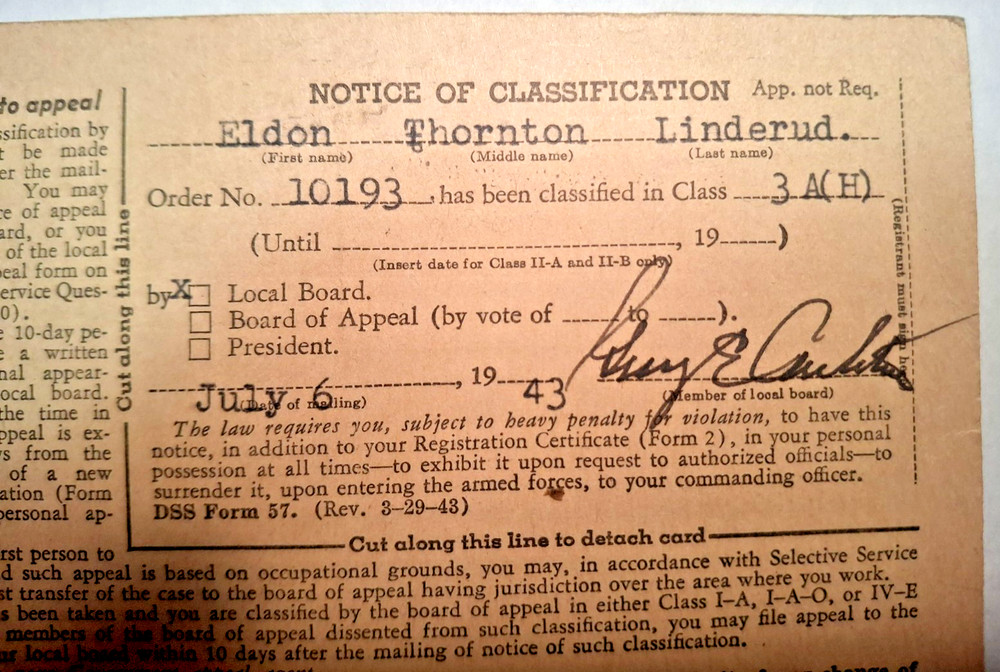 to appeal
ssification by
t be made
er the mail-
You may
ce of appeal
ard, or you
of the local
eal form on
ervice Ques-
0).
e 10-day pe-
e a written
nal appear-
ocal board.
the time in
ppeal is ex-
ys from the
of a new
ation (Form
personal ap-
Cut along this line
NOTICE OF CLASSIFICATION App. not Req.
Eldon Thornton Linderud.
(First name) (Middle name) (Last name)
Order No. 10193, has been classified in Class 3 A(H)
(Until , 19 )
(Insert date for Class II-A and II-B only)
by X Local Board.
Board of Appeal (by vote of to ).
President.
July 6, 19 43
(Date of mailing) (Member of local board)
(Registrant must sign here)
The law requires you, subject to heavy penalty for violation, to have this
notice, in addition to your Registration Certificate (Form 2), in your personal
possession at all times—to exhibit it upon request to authorized officials—to
surrender it, upon entering the armed forces, to your commanding officer.
DSS Form 57. (Rev. 3-29-43)
Cut along this line to detach card
rst person to
d such appeal is based on occupational grounds, you may, in accordance with Selective Service
st transfer of the case to the board of appeal having jurisdiction over the area where you work.
s been taken and you are classified by the board of appeal in either Class I-A, I-A-O, or IV-E
members of the board of appeal dissented from such classification, you may file appeal to the
ur local board within 10 days after the mailing of notice of such classification.
change of